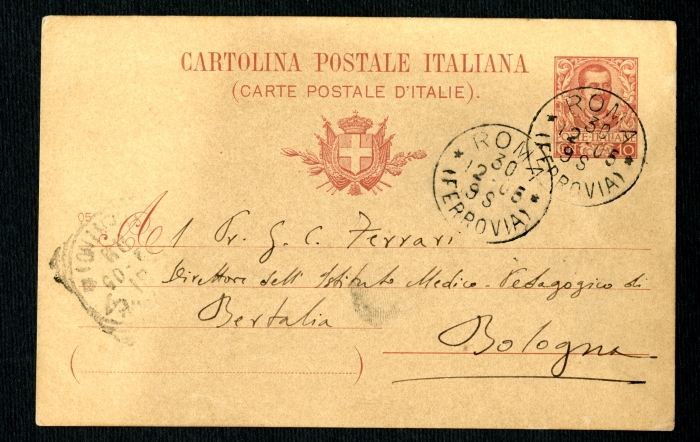 CARTOLINA POSTALE ITALIANA
(CARTE POSTALE D'ITALIE).
POSTE ITALIANE
10
ROMA
30
12 05
9 S
* (FERROVIA) *
ROMA
30
12 05
9 S
* (FERROVIA) *
05
Al Pr. G. C. Ferrari
Direttore dell'Istituto Medico-Pedagogico di
Bertalia
Bologna
( )